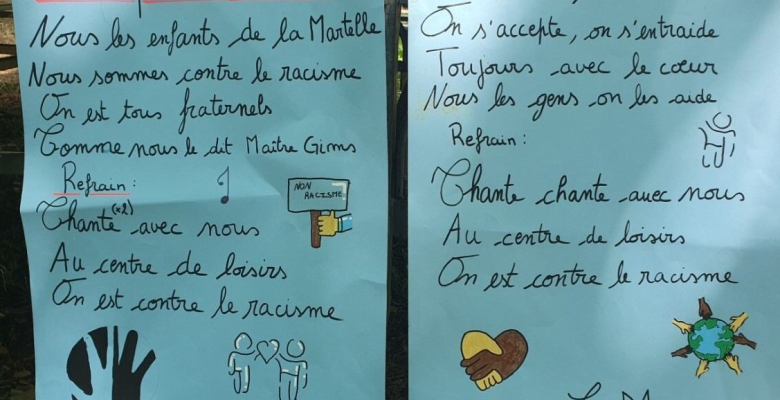 Nous les enfants de la Martelle
Nous sommes contre le racisme
On est tous fraternels
Comme nous le dit Maître Gims
Refrain:
Chante (x2) avec nous
Au centre de loisirs
On est contre le racisme
NON
RACISME
On s'accepte, on s'entraide
Toujours avec le cœur
Nous les gens on les aide
Refrain:
Chante chante avec nous
Au centre de loisirs
On est contre le racisme